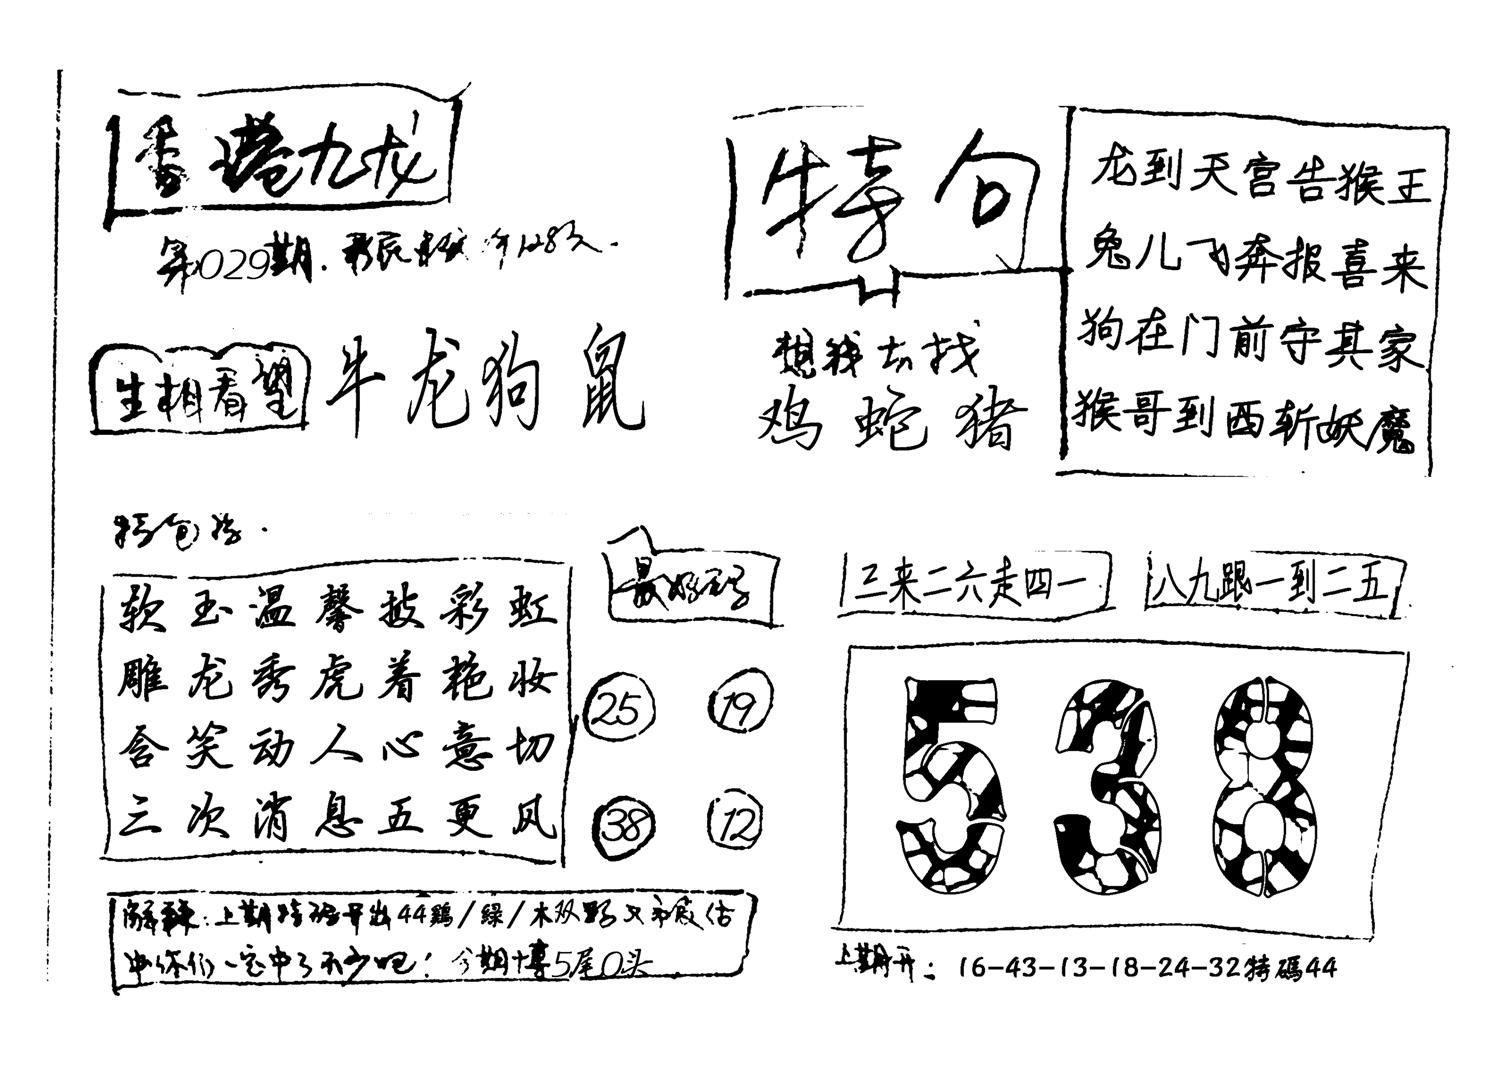 香港九龙
第029期.
生相看望
牛龙狗鼠
特句
想我去找
鸡蛇猪
龙到天宫告猴王
兔儿飞奔报喜来
狗在门前守其家
猴哥到西斩妖魔
软玉温馨披彩虹
雕龙秀虎着艳妆
含笑动人心意切
三次消息五更风
最好码
25 19
38 12
三来二六走四一
八九跟一到二五
538
上期特码开出44鷄/綠/木双
你们一定中了不少吧！今期博5尾0头
上期开：16-43-13-18-24-32特碼44